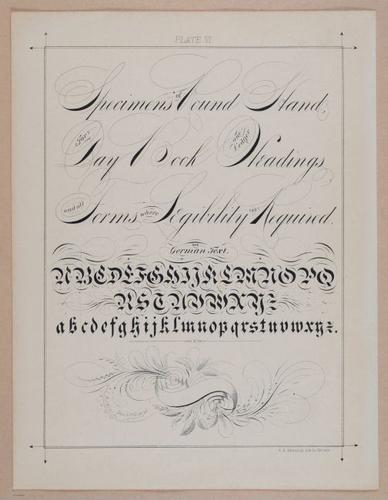 PLATE VI
Specimens of Round Hand,
for Day Book and Ledger Headings
and all Forms where Legibility is Required.
German Text.
ABCDEFGHIJKLMNOPQ
RSTUVWXYZ
abcdefghijklmnopqrstuvwxyz.